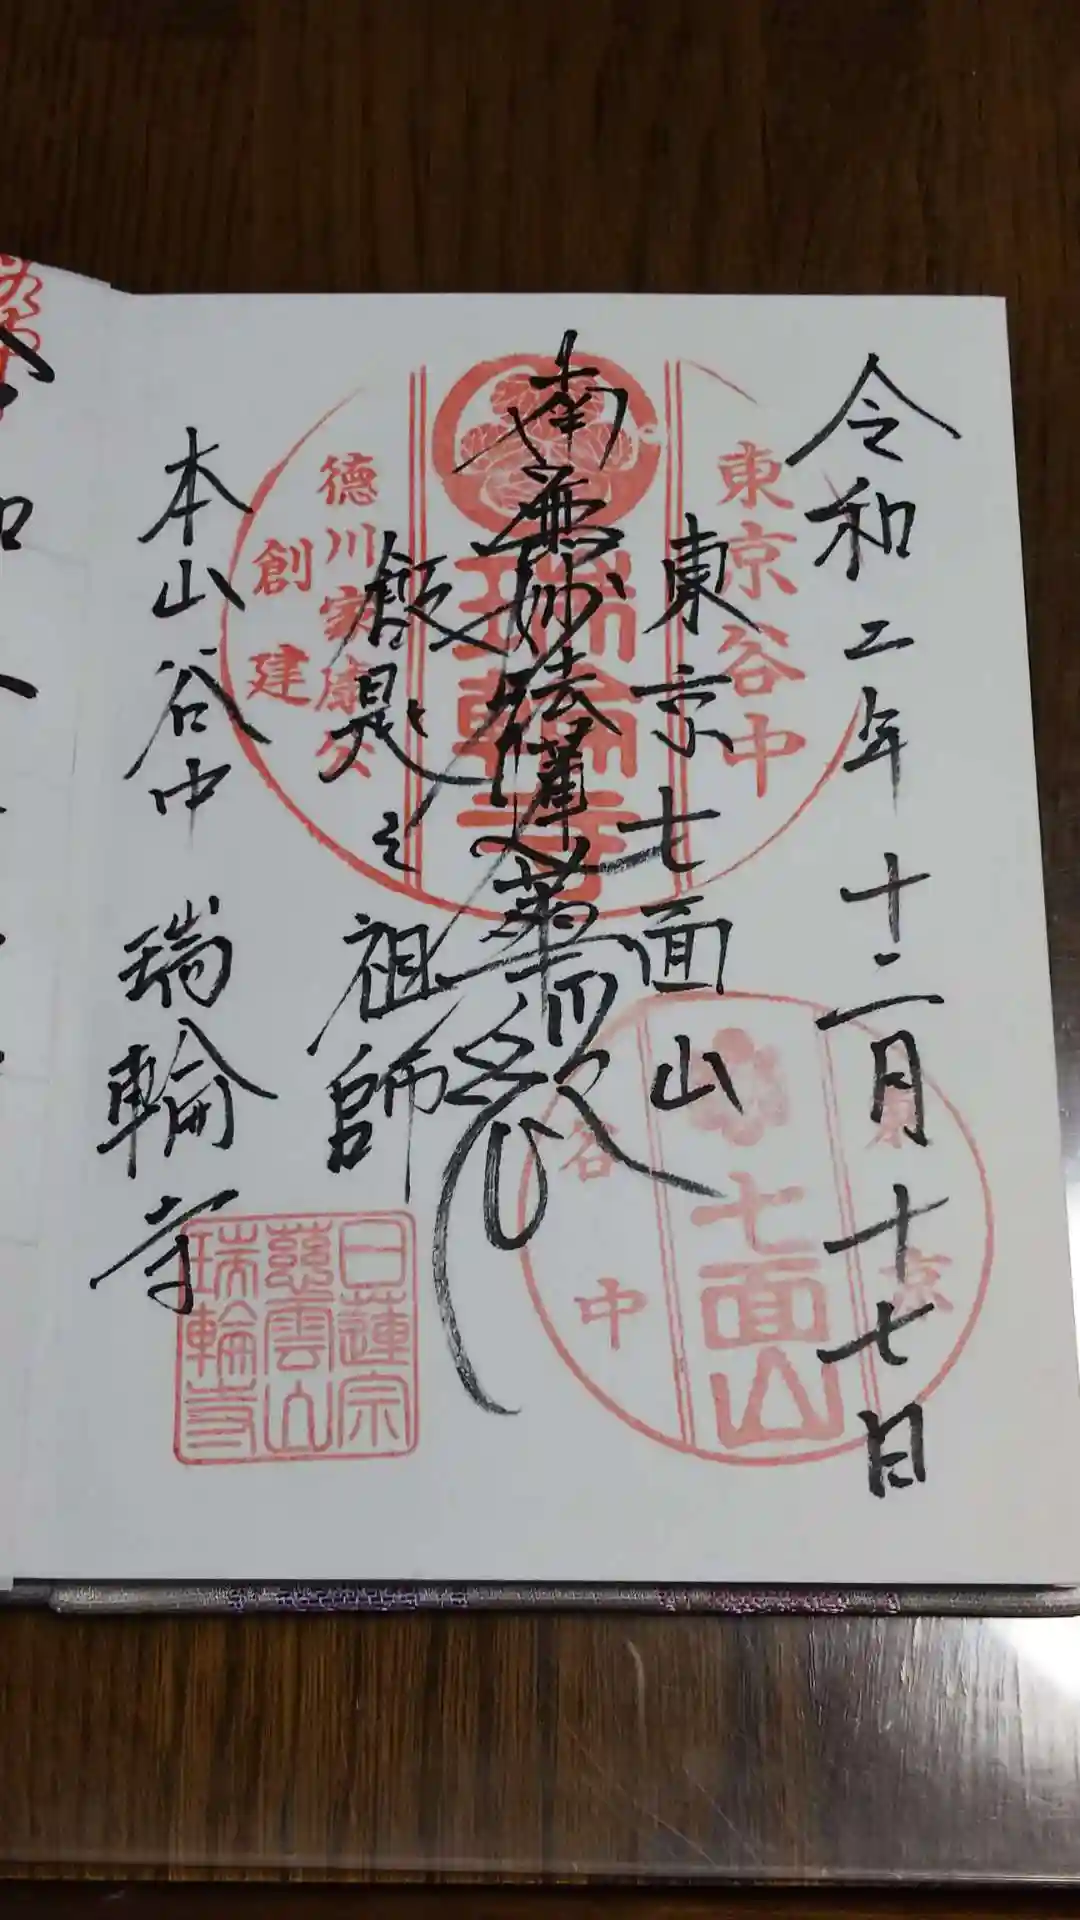 令和二年十二月十七日
東京七面山
南無妙法蓮華経
飯匙之
祖師
本山谷中 瑞輪寺
東京谷中
瑞輪寺
徳川家康公
創建
東京
七面山
谷中
日蓮宗
慈雲山
瑞輪寺